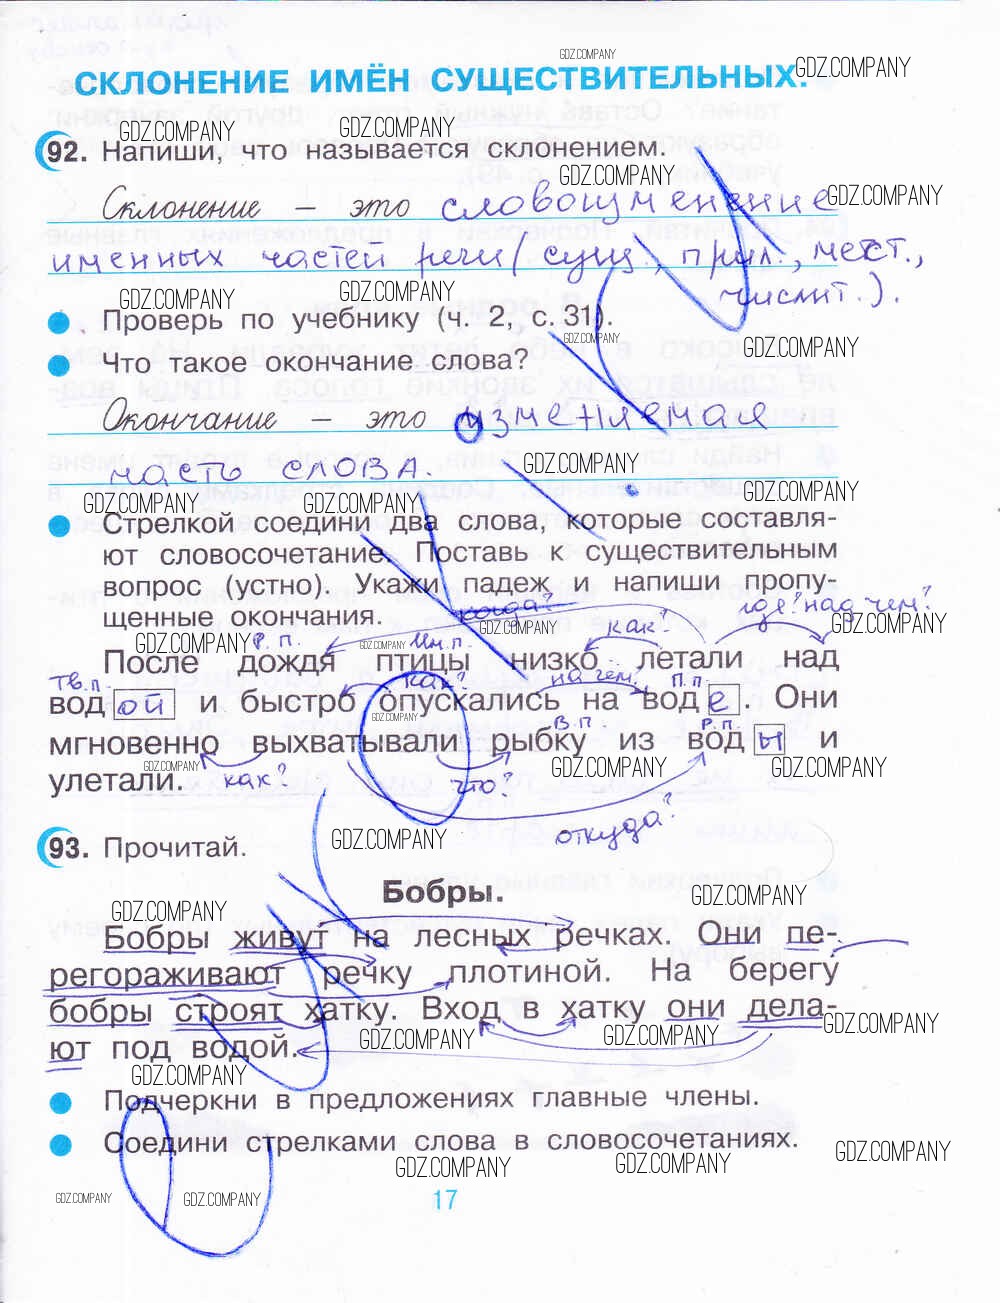 GDZ.COMPANY
СКЛОНЕНИЕ ИМЁН СУЩЕСТВИТЕЛЬНЫХ. GDZ.COMPANY
GDZ.COMPANY GDZ.COMPANY
92. Напиши, что называется склонением.
GDZ.COMPANY GDZ.COMPANY
Склонение – это словоизменение
именных частей речи (сущ., прил., мест.,
числит.).
GDZ.COMPANY GDZ.COMPANY
Проверь по учебнику (ч. 2, с. 31).
GDZ.COMPANY GDZ.COMPANY
Что такое окончание слова?
Окончание – это изменяемая
часть слова.
GDZ.COMPANY
GDZ.COMPANY GDZ.COMPANY GDZ.COMPANY
Стрелкой соедини два слова, которые составля-
ют словосочетание. Поставь к существительным
вопрос (устно). Укажи падеж и напиши пропу-
щенные окончания. когда? где? над чем?
GDZ.COMPANY Р.п. GDZ.COMPANY Им.п. GDZ.COMPANY как? GDZ.COMPANY
После дождя птицы низко летали над
тв.п. как? на чем? П.п.
водой и быстро опускались на воде. Они
GDZ.COMPANY В.п. Р.п.
мгновенно выхватывали рыбку из воды и
GDZ.COMPANY GDZ.COMPANY GDZ.COMPANY
улетали. как? что?
откуда?
GDZ.COMPANY
93. Прочитай.
Бобры. GDZ.COMPANY
GDZ.COMPANY
Бобры живут на лесных речках. Они пе-
регораживают речку плотиной. На берегу
бобры строят хатку. Вход в хатку они дела-
GDZ.COMPANY GDZ.COMPANY GDZ.COMPANY
ют под водой.
GDZ.COMPANY
Подчеркни в предложениях главные члены.
Соедини стрелками слова в словосочетаниях.
GDZ.COMPANY GDZ.COMPANY GDZ.COMPANY
GDZ.COMPANY GDZ.COMPANY
17